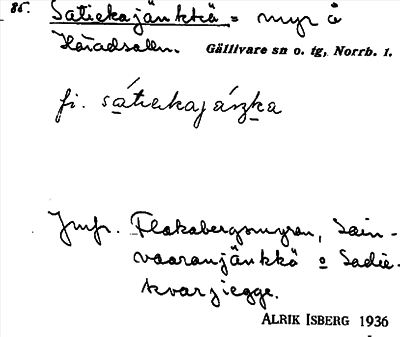 86. Satiekajänkkä = myr å
Häradsallm. Gällivare sn o. tg, Norrb. l.
fi. sátiekajáŋka
Jmfr. Flakabergsmyran, Sain-
vaaranjänkkä o Sadie-
kvarjiegge.
ALRIK ISBERG 1936